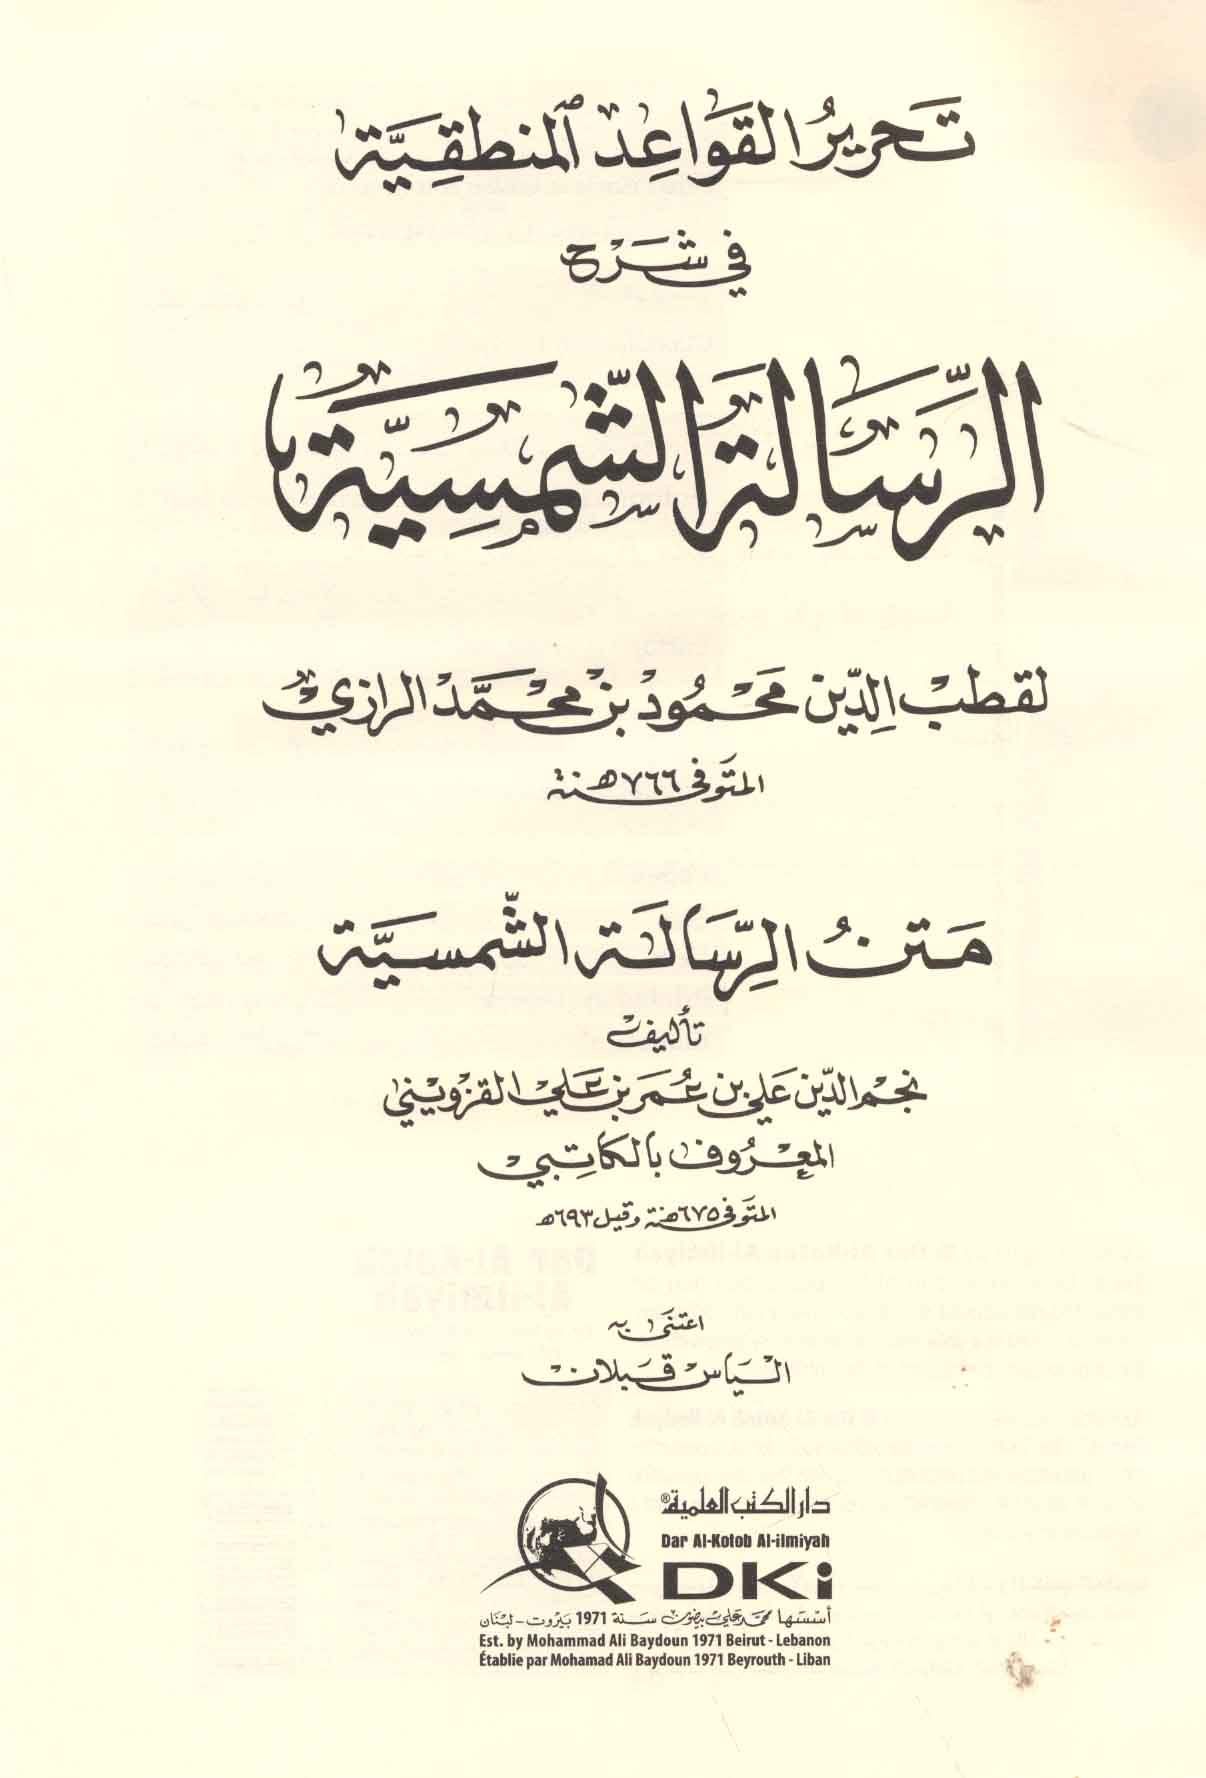 تحرير القواعد المنطقية
في شرح
الرسالة الشمسية
لقطب الدين محمود بن محمد الرازي
المتوفى سنة ٧٦٦ هـ
متن الرسالة الشمسية
تأليف
نجم الدين علي بن عمر بن علي القزويني
المعروف بالكاتبي
المتوفى سنة ٦٧٥ هـ وقيل ٦٩٣ هـ
اعتنى به
الياس قبلان
دار الكتب العلمية®
Dar Al-Kotob Al-ilmiyah
DKi
أسسها محمد علي بيضون سنة 1971 بيروت - لبنان
Est. by Mohammad Ali Baydoun 1971 Beirut - Lebanon
Établie par Mohamad Ali Baydoun 1971 Beyrouth - Liban